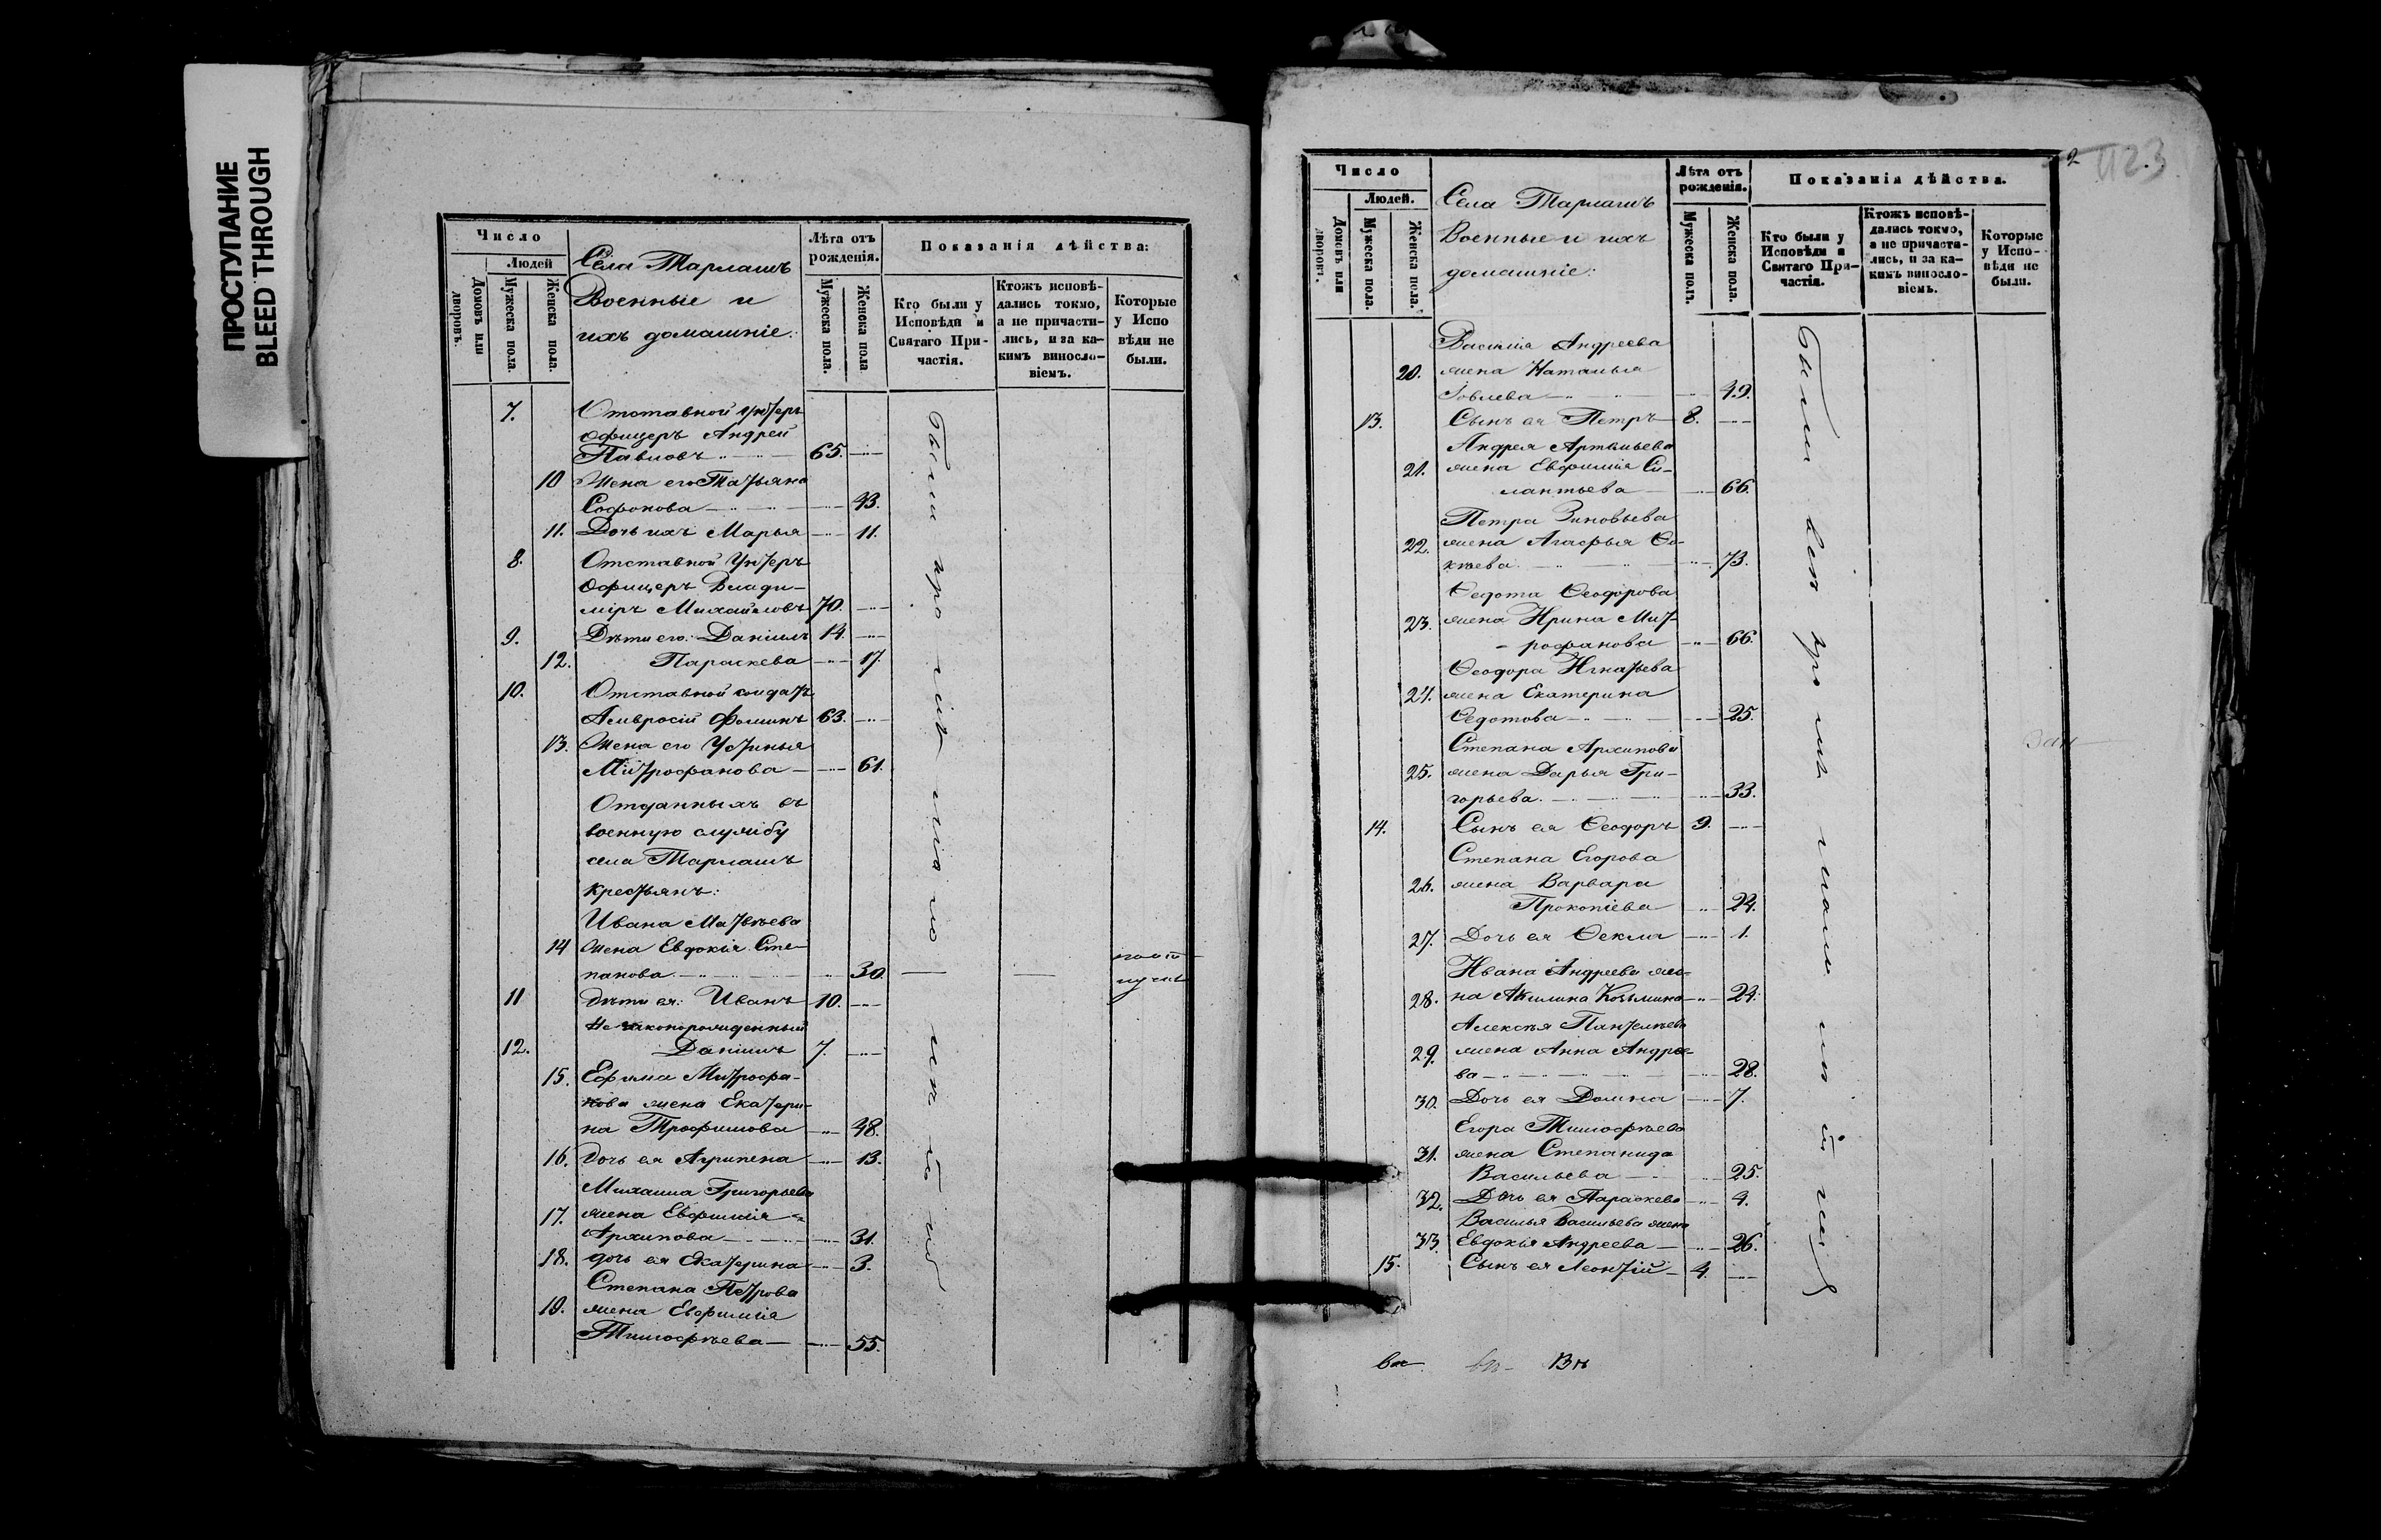 ПРОСТУПАНИЕ
BLEED THROUGH
Число
Людей
Домовъ или дворовъ.
Мужеска пола.
Женска пола.
Села Тарлашъ
Военные и
ихъ домашніе:
Лѣта отъ рожденія.
Мужеска пола.
Женска пола
Показанія дѣйства:
Кто были у Исповѣди и Святаго Причастія.
Ктожъ исповѣдались токмо, а не причастились, и за какимъ винословіемъ.
Которые у Исповѣди не были.
7. Отставной унтеръ
офицеръ Андрей
Павловъ 65.
10 Жена его Татьяна
Софонова 43.
11. Дочь ихъ Марья 11.
8. Отставной Унтеръ
офицеръ Влади-
міръ Михайловъ 70.
9. Дѣти его: Даніилъ 14.
12. Параскева 17.
10. Отставной солдатъ
Амвросій Фоминъ 63.
13. Жена его Устинья
Митрофанова 61.
Отданныхъ въ
военную службу
села Тарлашъ
крестьянъ:
Ивана Матвѣева
14 Жена Евдокія Сте-
панова 30.
11 Дѣти ея: Иванъ 10.
Незаконорожденный
12. Даніилъ 7.
15. Ефима Митрофа-
нова жена Екатери-
на Трофимова 48.
16. Дочь ея Агрипена 13.
Михаила Григорьева
17. жена Евфимія
Архипова 31.
18. дочь ея Екатерина 3.
Степана Петрова
19. жена Евфимія
Тимофѣева 55.
2
1123
Число
Людей.
Домовъ или дворовъ.
Мужеска пола.
Женска пола.
Села Тарлашъ
Военные и ихъ
домашніе:
Лѣта отъ рожденія.
Мужеска пола.
Женска пола.
Показанія дѣйства.
Кто были у Исповѣди и Святаго Причастія.
Ктожъ исповѣдались токмо, а не причастились, и за какимъ винословіемъ.
Которые у Исповѣди не были.
Василія Андреева
20. жена Наталья
Іовлева 49.
13. Сынъ ея Петръ 8.
Андрея Артемьева
21. жена Евфимія Си-
лантьева 66.
Петра Зиновьева
22. жена Агафья Ѳо-
кеева 73.
Ѳедота Ѳеодорова
23. жена Ирина Мит-
рофанова 66.
Ѳеодора Игнатьева
24. жена Екатерина
Ѳедотова 25.
Степана Архипова
25. жена Дарья Гри-
горьева 33.
14. Сынъ ея Ѳеодоръ 9.
Степана Егорова
26. жена Варвара
Прокопіева 24.
27. Дочь ея Ѳекла 1.
Ивана Андреева же-
28. на Акилина Козьмина 24.
Алексѣя Пантелѣева
29. жена Анна Андрее-
ва 28.
30. Дочь ея Домна 7.
Егора Тимофѣева
31. жена Степанида
Васильева 25.
32. Дочь ея Параскева 4.
Василья Васильева жена
33. Евдокія Андреева 26.
15. Сынъ ея Леонтій 4.